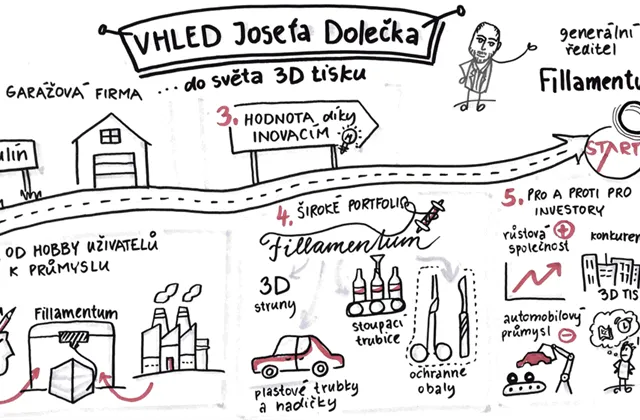 VHLED Josefa Dolečka
...do světa 3D tisku
generální
ředitel
Fillamentu
GARÁŽOVÁ FIRMA
ulín
3. HODNOTA díky
INOVACÍM
START
4. ŠIROKÉ PORTFOLIO
fillamentum
3D
struny
stoupací
trubice
plastové trubky
a hadičky
ochranné
obaly
OD HOBBY UŽIVATELŮ
K PRŮMYSLU
Fillamentum
5. PRO A PROTI PRO
INVESTORY
růstová
společnost
konkuren
3D TIS
automobilový
průmysl